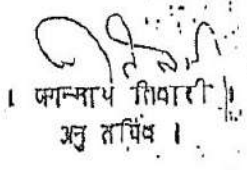 । जगन्नाथ तिवारी ।
अनु सचिव ।